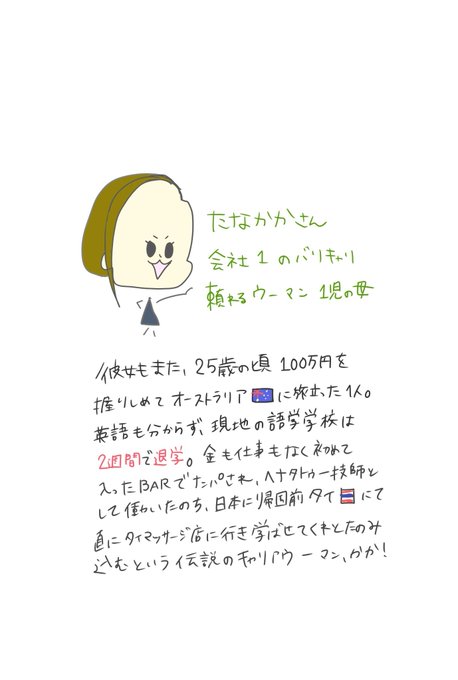 たなかかさん
会社1のバリキャリ
頼れるウーマン 1児の母
彼女もまた、25歳の頃 100万円を
握りしめて オーストラリア🇦🇺に旅立った1人。
英語も分からず、現地の語学学校は
2週間で退学。金も仕事もなく初めて
入ったBARでナンパされ、ヘナタトゥー技師と
して働いたのち、日本に帰国前タイ🇹🇭にて
直にタイマッサージ店に行き学ばせてくれとたのみ
込むという伝説のキャリアウーマン、かか!